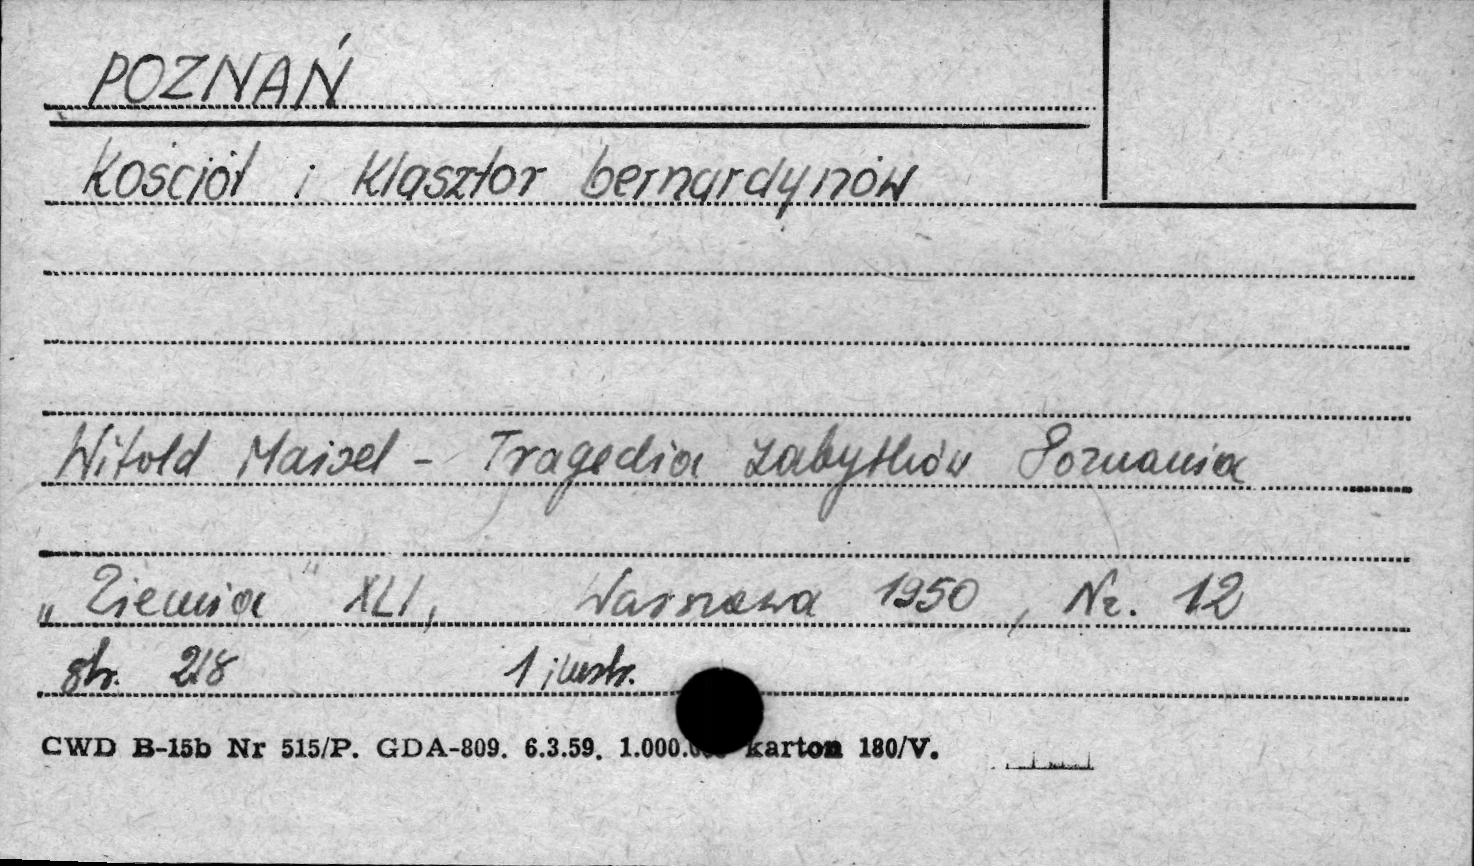 POZNAŃ
Kościół i klasztor bernardynów
Witold Maisel - Tragedia zabytków Poznania
„Ziemia" XLI, Warszawa 1950, Nr. 12
str. 218 1 ilustr.
CWD B-15b Nr 515/P. GDA-809. 6.3.59. 1.000.000 karton 180/V.